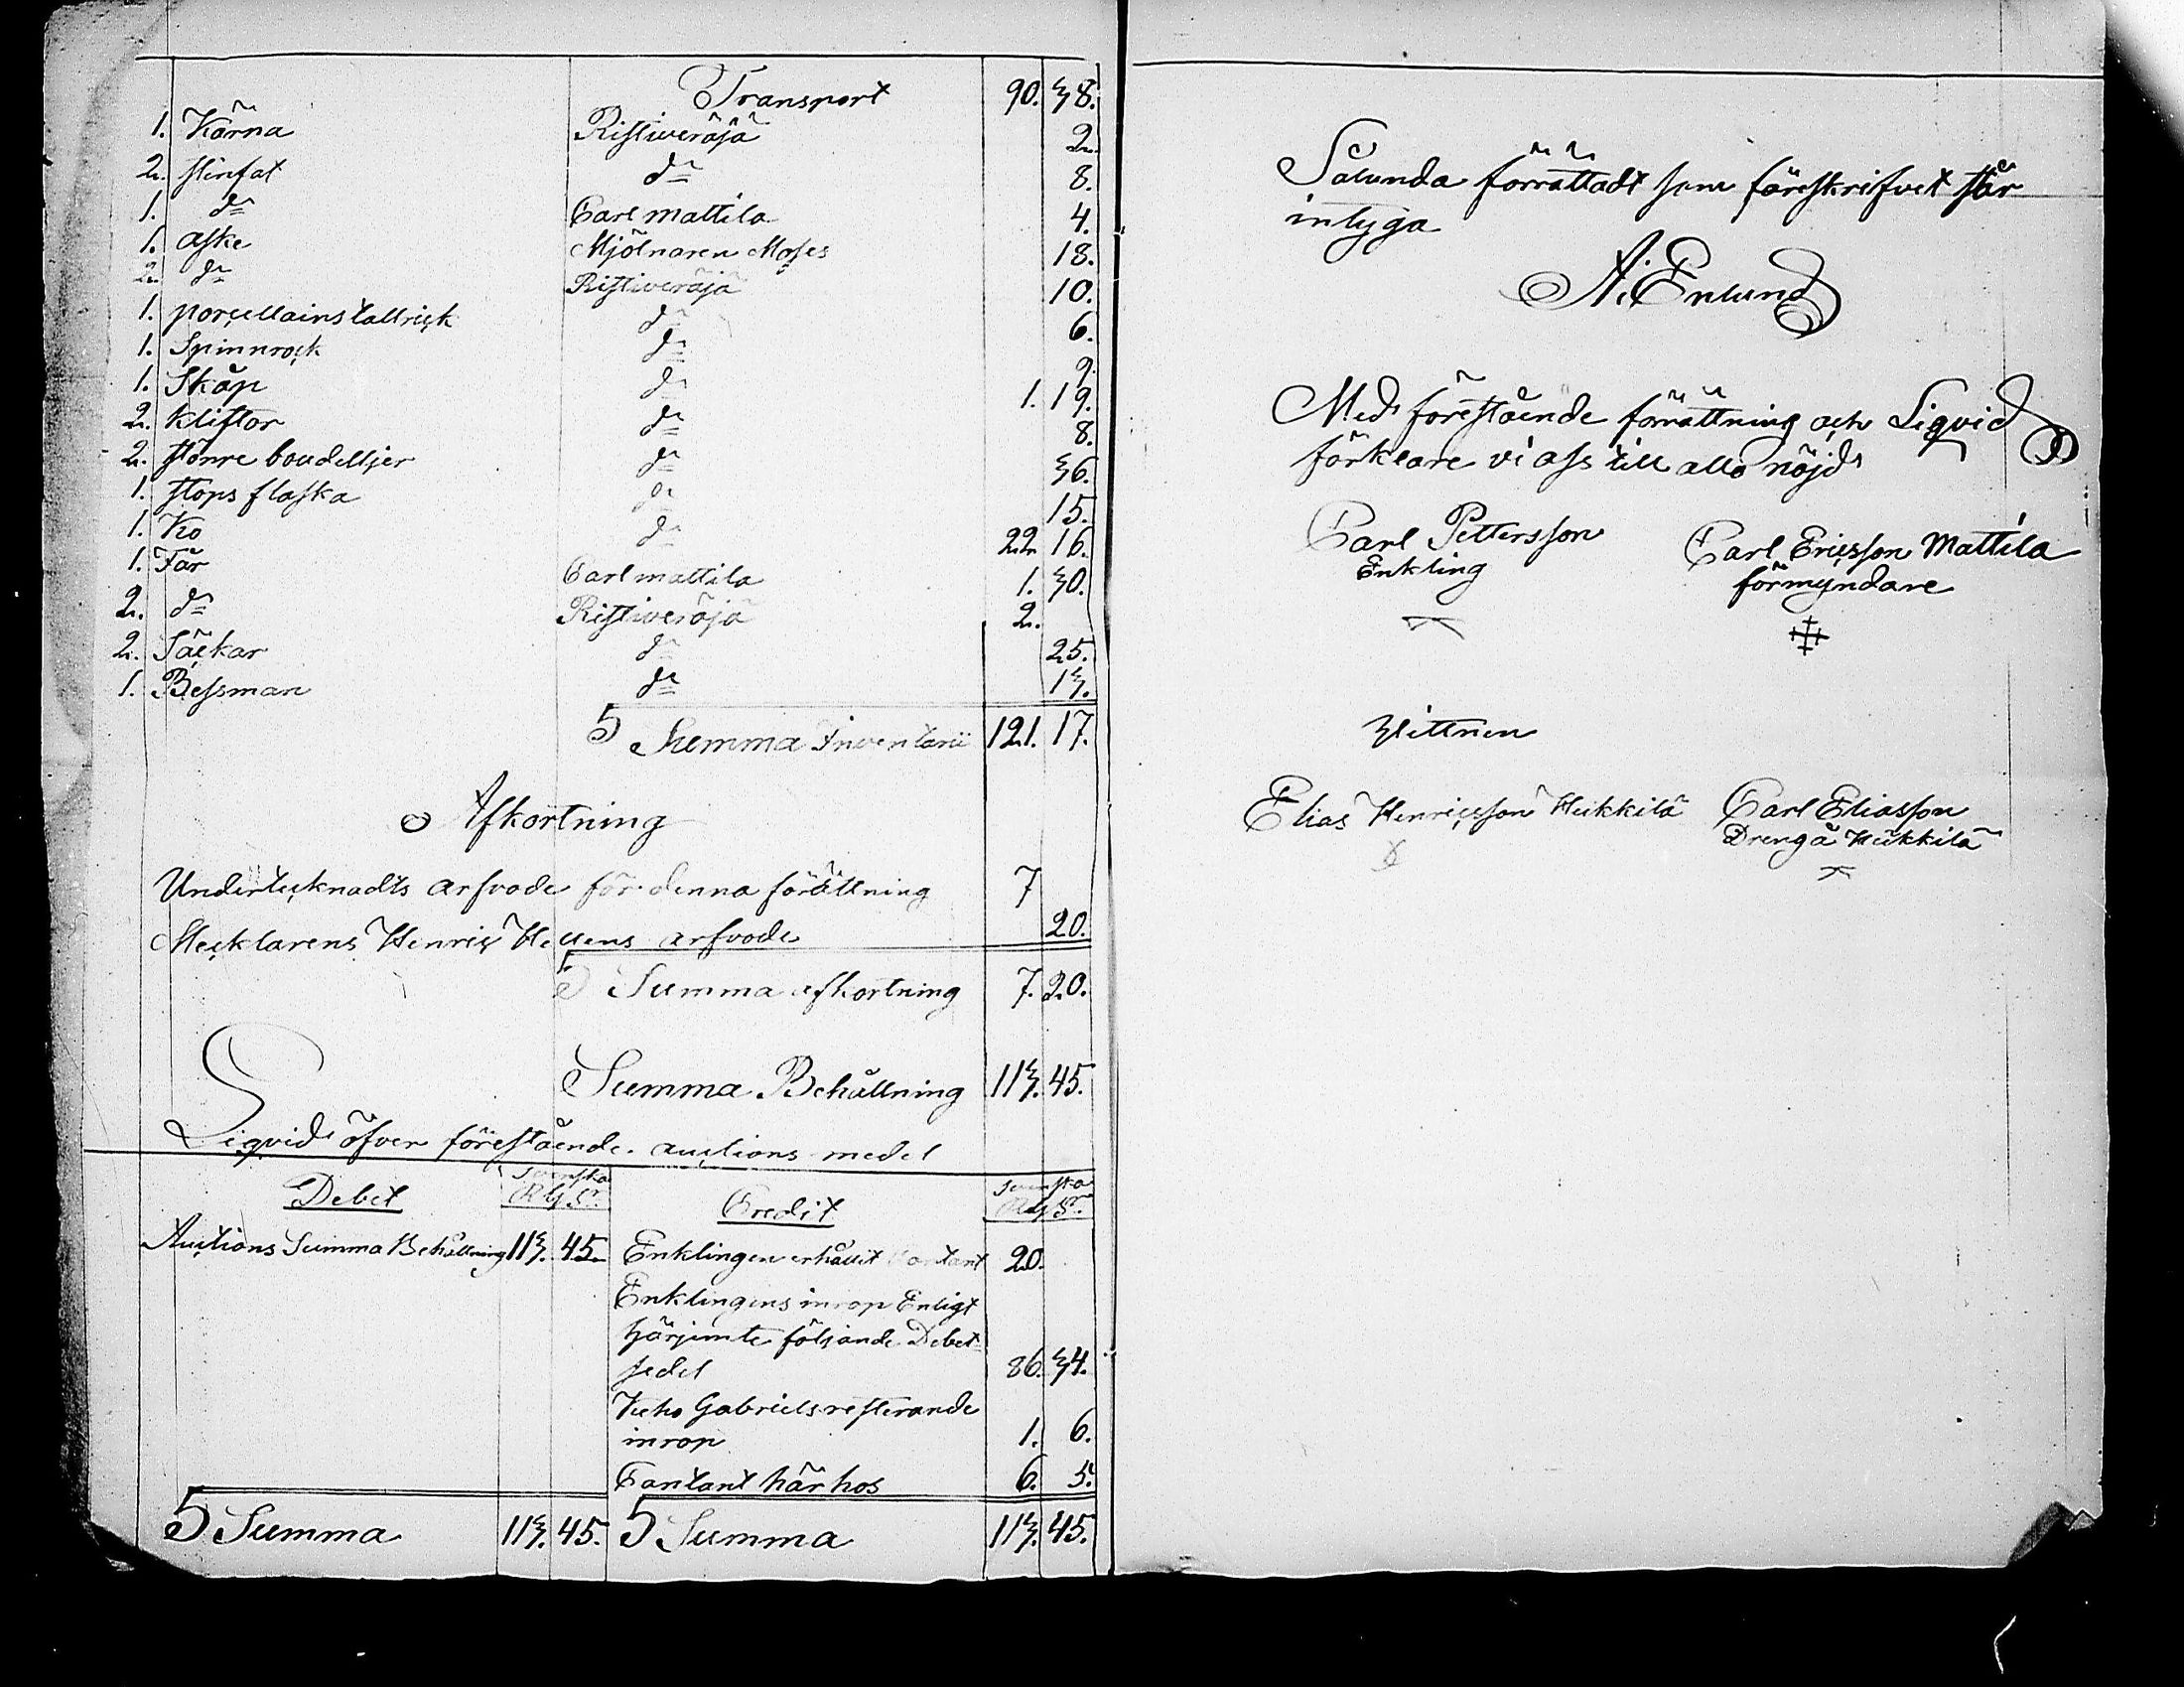 Transport 90. 38.
1. Kärna Ristiveräjä 2.
2. stenfat do 8.
1. do Carl Mattila 4.
1. aske Mjölnaren Moses 18.
2. do Ristiveräjä 10.
1. porcellains tallrick do 6.
1. Spinnrock do 9.
1. Skåp do 1. 19.
2. kliftor do 8.
2. större boudelljer do 36.
1. stops flaska do 15.
1. Ko do 22. 16.
1. Får Carl mattila 1. 30.
2. do Ristiveräjä 2.
2. Säckar do 25.
1. Bessman do 13.
Summa Inventarii 121. 17.
Afkortning
Undertecknadts arfvode för denna förättning 7
Mecklarens Henric arfvode 20.
Summa afkortning 7. 20.
Summa Behållning 113. 45.
Liqvid öfver förestående auctions medel
Debet Svenska Credit Svenska
Auctions Summa Behållning 113. 45. Enklingen erhållit Contant 20.
Enklingens inrop Enligt
härjemte följande Debet-
sedel 86. 34.
Kuho Gabriels resterande
inrop 1. 6.
Contant här hos 6. 5.
Summa 113. 45. Summa 113. 45.
Sålunda förrättadt som föreskrifvet står
intyga
A. Enlund
Med förestående förrättning och Liqvid
förklare vi oss till alla nöjd
Carl Pettersson Carl Ericsson Mattila
Enkling förmyndare
Vittnen
Elias Henricsson Heikkilä Carl Eliasson
Dreng å Heikkilä